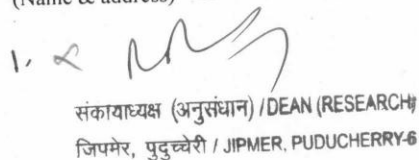 (Name & address)
1.
संकायाध्यक्ष (अनुसंधान) / DEAN (RESEARCH)
जिपमेर, पुदुच्चेरी / JIPMER, PUDUCHERRY-6